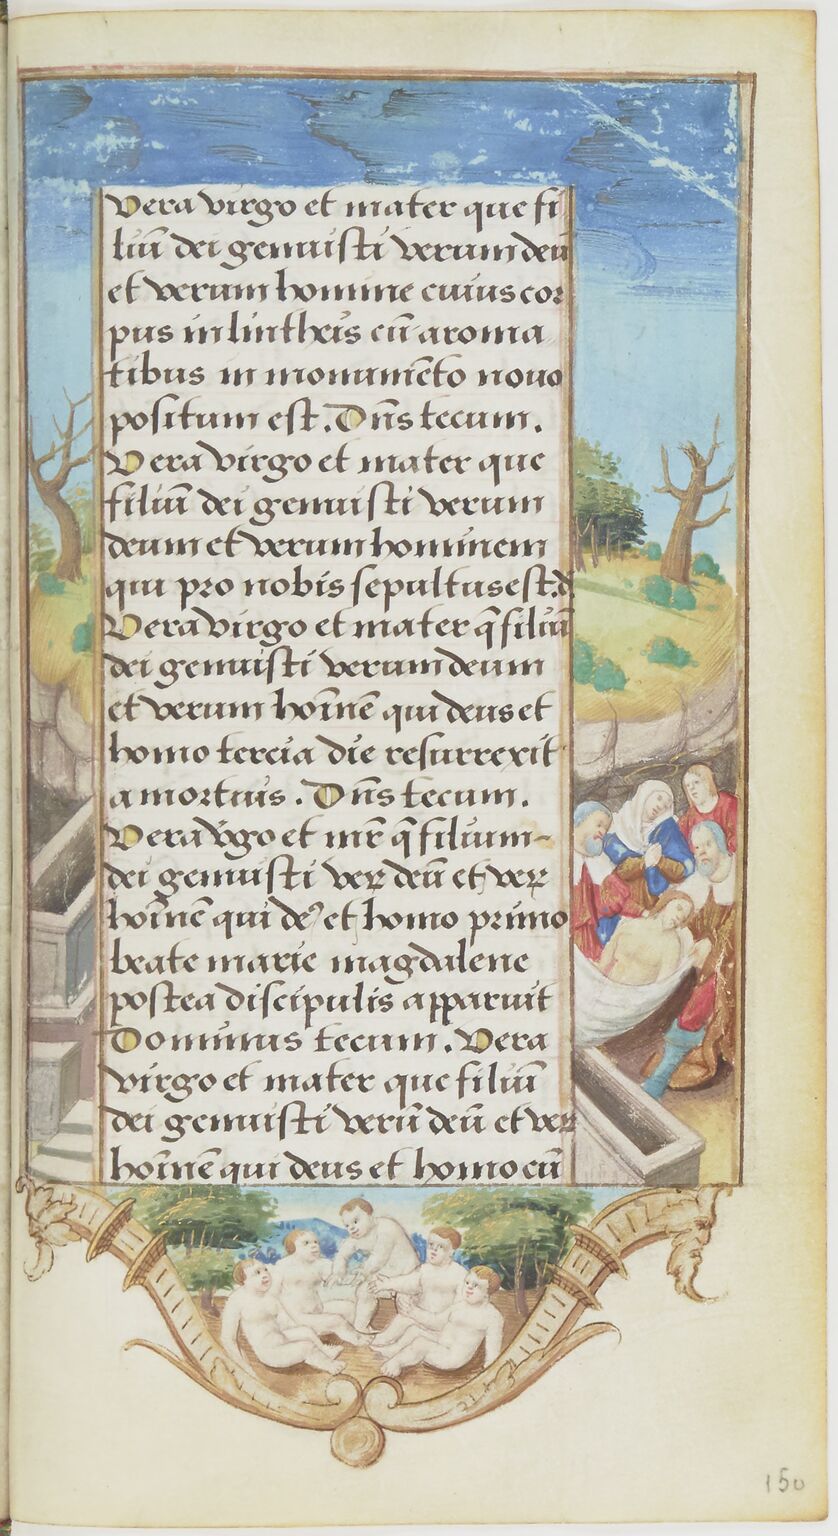 Vera virgo et mater que fi
liū dei genuisti verum deū
et verum homine cuius cor
pus in lintheis cū aroma
tibus in monumēto novo
positum est. Dn̄s tecum.
Vera virgo et mater que
filiū dei genuisti verum
deum et verum hominem
qui pro nobis sepultus est. d
Vera virgo et mater q̄ filiū
dei genuisti verum deum
et verum hoīnē qui deus et
homo tercia die resurrexit
a mortuis. Dn̄s tecum.
Vera v̄go et mr̄ q̄ filium
dei genuisti veꝝ deū et veꝝ
hoīnē qui de᾿ et homo primo
beate marie magdalene
postea discipulis apparuit
Dominus tecum. Vera
virgo et mater que filiū
dei genuisti verū deū et veꝝ
hoīnē qui deus et homo cū
150